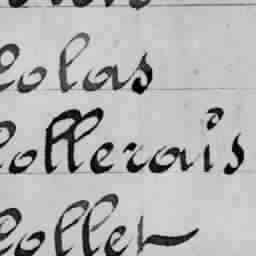 Colas
Collerais
Collet